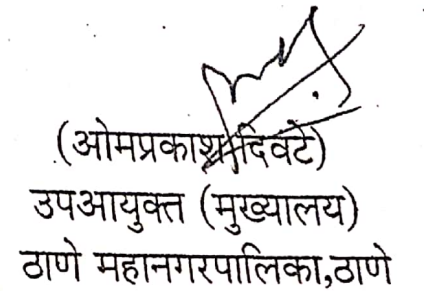 (ओमप्रकाश दिवटे)
उपआयुक्त (मुख्यालय)
ठाणे महानगरपालिका,ठाणे